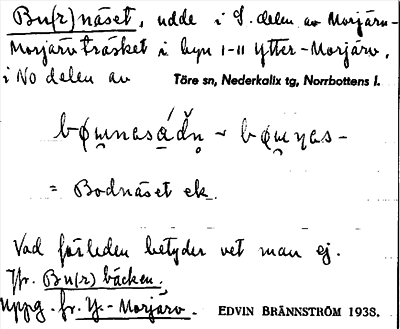 Bn(r)näset, udde i S. delen av Morjärv-
Morjärvträsket i byn 1-11 Ytter-Morjärv,
i NO delen av Töre sn, Nederkalix tg, Norrbottens l.
= Bodnäset ek.
Vad förleden betyder vet man ej.
Jfr. Bn(r)bäcken.
Uppg. fr. Y.-Morjärv. EDVIN BRÄNNSTRÖM 1938.